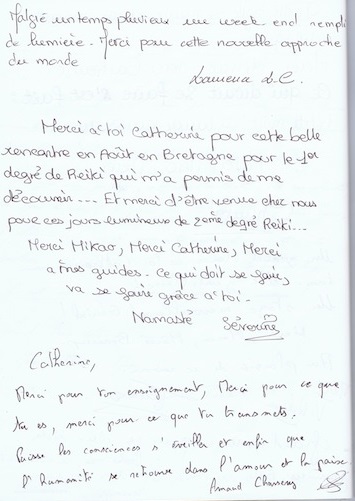 Malgré un temps pluvieux un week-end rempli
de lumière. Merci pour cette nouvelle approche
du monde
Laurence L.C.
Merci à toi Catherine pour cette belle
rencontre en Août en Bretagne pour le 1er
degré de Reiki qui m'a permis de me
découvrir... Et merci d'être venue chez nous
pour ces jours lumineux de 2ème degré Reiki...
Merci Mikao, Merci Catherine, Merci
à mes guides. Ce qui doit se faire,
va se faire grâce à toi.
Namasté Séverine
Catherine,
Merci pour ton enseignement, Merci pour ce que
tu es, merci pour ce que tu transmets.
Puisse les consciences s'éveiller et enfin que
l'humanité se retrouve dans l'amour et la paix.
Arnaud